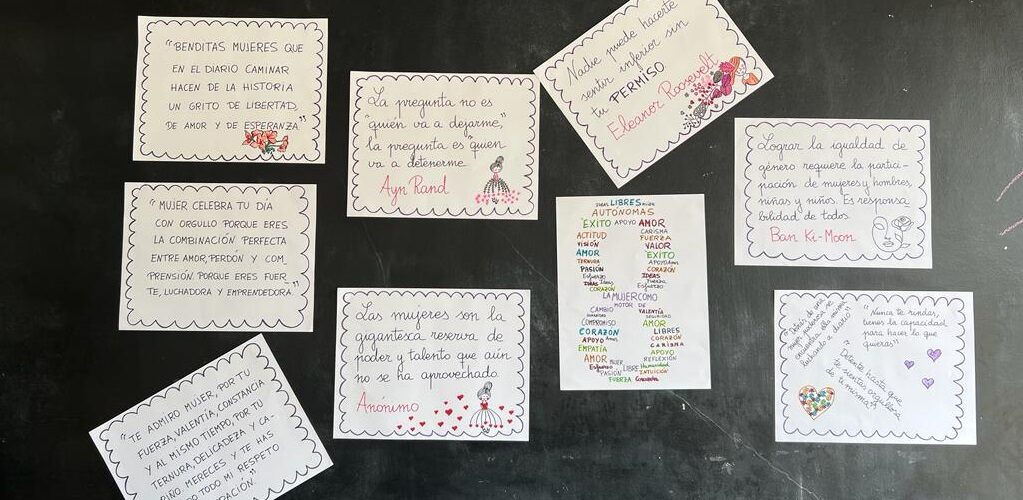 "BENDITAS MUJERES QUE
EN EL DIARIO CAMINAR
HACEN DE LA HISTORIA
UN GRITO DE LIBERTAD,
DE AMOR Y DE ESPERANZA"
"MUJER CELEBRA TU DÍA
CON ORGULLO PORQUE ERES
LA COMBINACIÓN PERFECTA
ENTRE AMOR, PERDÓN Y COM_
PRENSIÓN. PORQUE ERES FUER_
TE, LUCHADORA Y EMPRENDEDORA."
"TE ADMIRO MUJER, POR TU
FUERZA, VALENTÍA, CONSTANCIA
Y AL MISMO TIEMPO, POR TU
TERNURA, DELICADEZA Y CA-
RIÑO MERECES Y TE HAS
TODO MI RESPETO
La pregunta no es
"quién va a dejarme,"
la pregunta es quien
va a detenerme
Ayn Rand
Las mujeres son la
gigantesca reserva de
poder y talento que aún
no se ha aprovechado.
Anónimo
Nadie puede hacerte
sentir inferior sin
tu PERMISO
Eleanor Roosevelt
LIBRES
AUTÓNOMAS
ÉXITO APOYO AMOR
ACTITUD CARISMA
FUERZA
VISIÓN VALOR
AMOR ÉXITO
TERNURA APOYO Amor
PASIÓN CORAZÓN
Esfuerzo IDEAS
IDEAS Ideas Fuerza
CORAZÓN Esfuerzo
LA MUJER COMO
MOTOR DE
CAMBIO VALENTÍA
SEGURIDAD
COMPROMISO AMOR
CORAZÓN LIBRES
APOYO Amor CORAZÓN
EMPATÍA CARISMA
APOYO
AMOR MUJER REFLEXIÓN
Esfuerzo LIBRE Humanidad
PASIÓN INTUICIÓN
FUERZA
Lograr la igualdad de
género requiere la partici-
pación de mujeres y hombres,
niñas y niños. Es responsa
bilidad de todos.
Ban Ki-Moon
"Detrás de una
mujer poderosa se
encuentra ella misma
luchando a diario"
"Nunca te rindas,
tienes la capacidad
para hacer lo que
quieras"
"Detente hasta que
te sientas orgullosa
de ti misma"